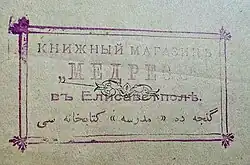 КНИЖНЫЙ МАГАЗИНЪ
„МЕДРЕСЕ
въ Елисаветполѣ.
گنجه ده « مدرسه » کتابخانه سی